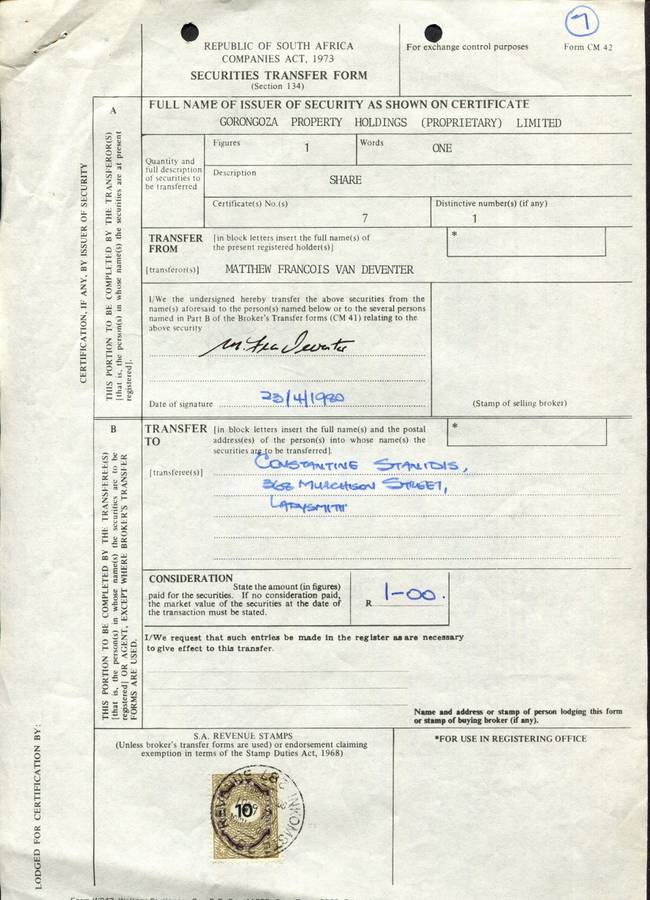 7
REPUBLIC OF SOUTH AFRICA
COMPANIES ACT, 1973
SECURITIES TRANSFER FORM
(Section 134)
For exchange control purposes
Form CM 42
A
FULL NAME OF ISSUER OF SECURITY AS SHOWN ON CERTIFICATE
GORONGOZA PROPERTY HOLDINGS (PROPRIETARY) LIMITED
CERTIFICATION, IF ANY, BY ISSUER OF SECURITY
THIS PORTION TO BE COMPLETED BY THE TRANSFEROR(S)
[that is, the person(s) in whose name(s) the securities are at present
registered].
Quantity and
full description
of securities to
be transferred
Figures 1
Words ONE
Description
SHARE
Certificate(s) No.(s)
7
Distinctive number(s) (if any)
1
TRANSFER
FROM
[in block letters insert the full name(s) of
the present registered holder(s)]
*
[transferor(s)]
MATTHEW FRANCOIS VAN DEVENTER
I/We the undersigned hereby transfer the above securities from the
name(s) aforesaid to the person(s) named below or to the several persons
named in Part B of the Broker's Transfer forms (CM 41) relating to the
above security
Date of signature 23/4/1980
(Stamp of selling broker)
B
THIS PORTION TO BE COMPLETED BY THE TRANSFEREE(S)
[that is, the person(s) in whose name(s) the securities are to be
registered] OR AGENT, EXCEPT WHERE BROKER'S TRANSFER
FORMS ARE USED.
TRANSFER
TO
[in block letters insert the full name(s) and the postal
address(es) of the person(s) into whose name(s) the
securities are to be transferred].
*
[transferee(s)]
CONSTANTINE STANIDIS,
368 MURCHISON STREET,
LADYSMITH
CONSIDERATION
State the amount (in figures)
paid for the securities. If no consideration paid,
the market value of the securities at the date of
the transaction must be stated.
R 1-00.
I/We request that such entries be made in the register as are necessary
to give effect to this transfer.
Name and address or stamp of person lodging this form
or stamp of buying broker (if any).
LODGED FOR CERTIFICATION BY:
S.A. REVENUE STAMPS
(Unless broker's transfer forms are used) or endorsement claiming
exemption in terms of the Stamp Duties Act, 1968)
*FOR USE IN REGISTERING OFFICE
10